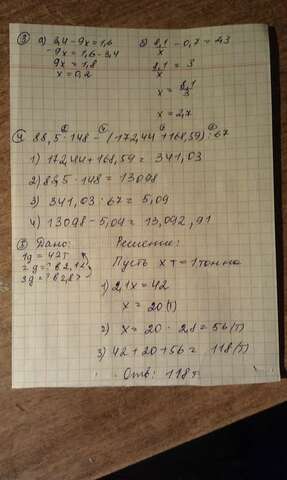 ③ а) 3,4 - 9x = 1,6
-9x = 1,6 - 3,4
9x = 1,8
x = 0,2
б) 8,1/x - 0,7 = 2,3
8,1/x = 3
x = 8,1/3
x = 2,7
④ 88,5 · 148 - (172,44 + 168,59) : 67
1) 172,44 + 168,59 = 341,03
2) 88,5 · 148 = 13098
3) 341,03 : 67 = 5,09
4) 13098 - 5,09 = 13,092,91
⑤ Дано:
1д = 42т
2д = ? в 2,1
3д = ? в 2,8 >
Решение:
Пусть x т = 1 тонна
1) 2,1x = 42
x = 20 (т)
2) x = 20 · 2,8 = 56 (т)
3) 42 + 20 + 56 = 118 (т)
Отв: 118 т